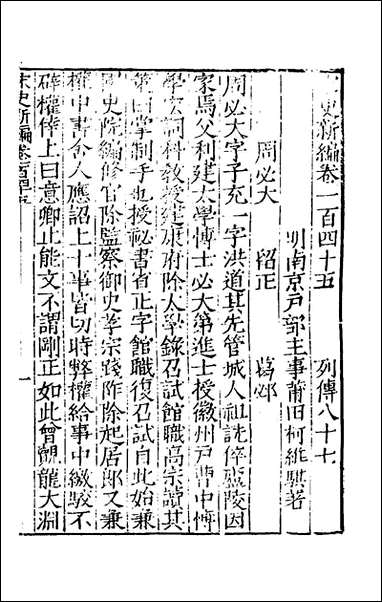 史新編卷一百四十五　列傳八十七
明南京戶部主事莆田柯維騏著
周必大　留正　葛邲
周必大字子充一字洪道其先管城人祖詵倅廬陵因
家焉父利建太學博士必大第進士授徽州戶曹中博
學宏詞科教授建康府除太學錄召試館職高宗讀其
策曰掌制手也授祕書省正字館職復召試自此始兼
國史院編修官除監察御史孝宗踐阼除起居郎又兼
權中書舍人應詔上十事皆切時弊權給事中繳駁不
辟權倖上曰意卿止能文不謂剛正如此曾覿龍大淵
宋史新編卷百四十五　一